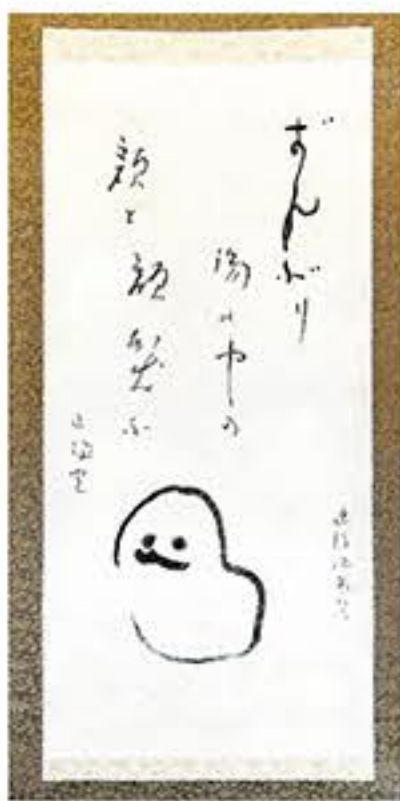 ずんぶり
湯の中の
顔と顔笑ふ